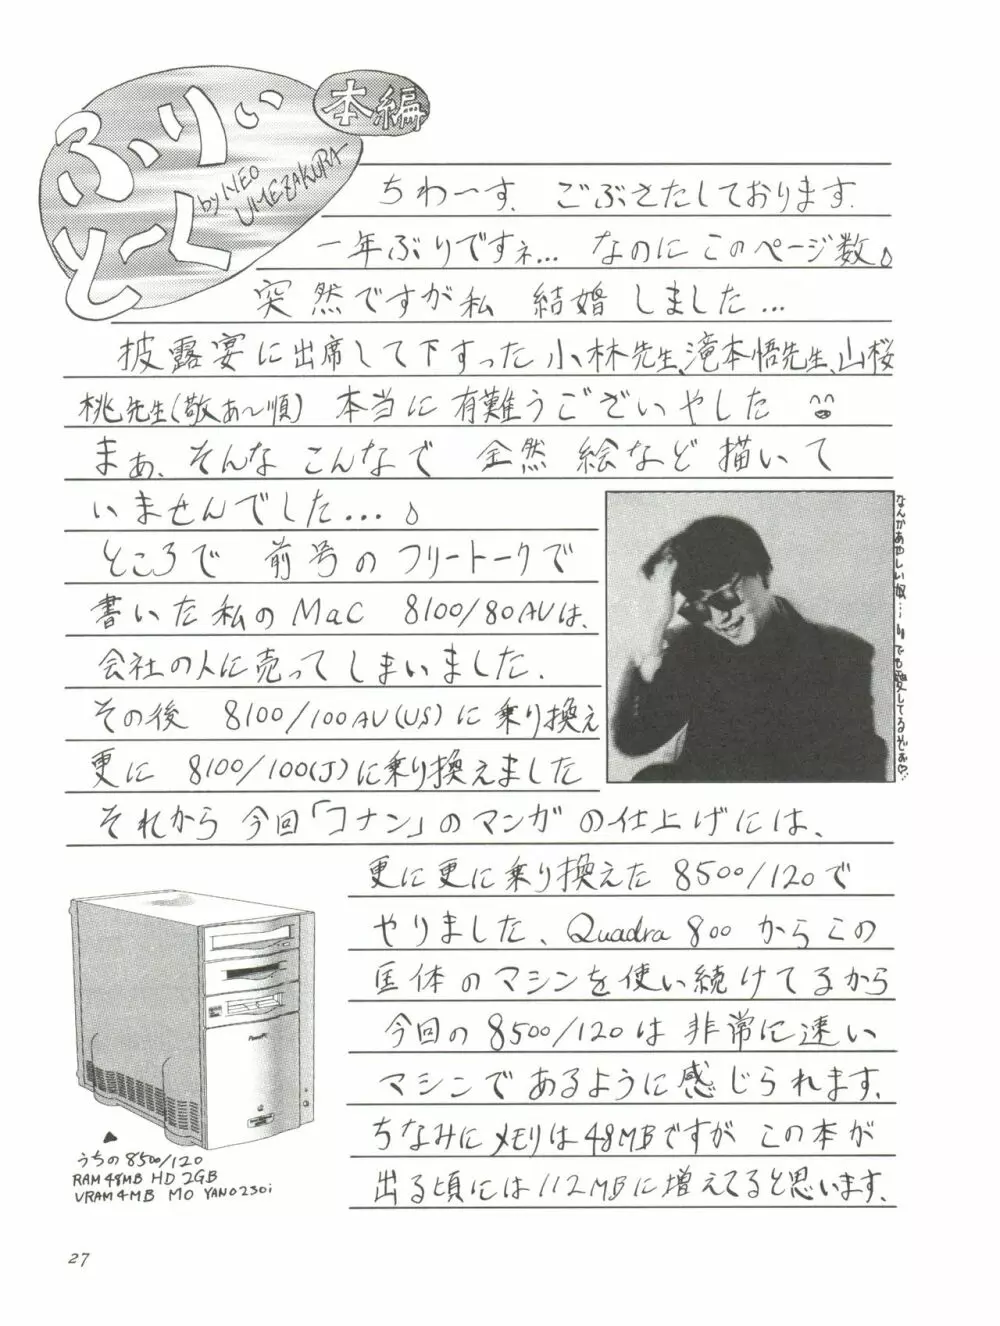 ふりぃとーく
本編
by NEO UMEZAKURA
ちわーす. ごぶさたしております.
一年ぶりですネ… なのに このページ数♪
突然ですが私 結婚 しました…
披露宴に出席して下すった 小林先生、滝本悟先生、山桜
桃先生(敬あ〜順) 本当に 有難うございやした
まぁ、そんな こんなで 全然 絵など 描いて
いませんでした…♪
ところで 前号の フリートークで
書いた私の MaC 8100/80AVは、
会社の人に売って しまいました.
その後 8100/100AV(US)に 乗り換え
更に 8100/100(J)に乗り換えました
それから 今回「コナン」のマンガ の仕上げには、
更に更に乗り換えた 8500/120で
やりました、Quadra 800 からこの
匡体のマシンを使い続けてるから
今回の 8500/120は 非常に速い
マシンで あるように感じられます.
ちなみに メモリは48MBですが この本が
出る頃には 112MBに増えてると思います.
なんかあやしい奴… でも愛してるぞぉ♡…
PowerPC
うちの 8500/120
RAM 48MB HD 2GB
VRAM 4MB MO YANO230i
27